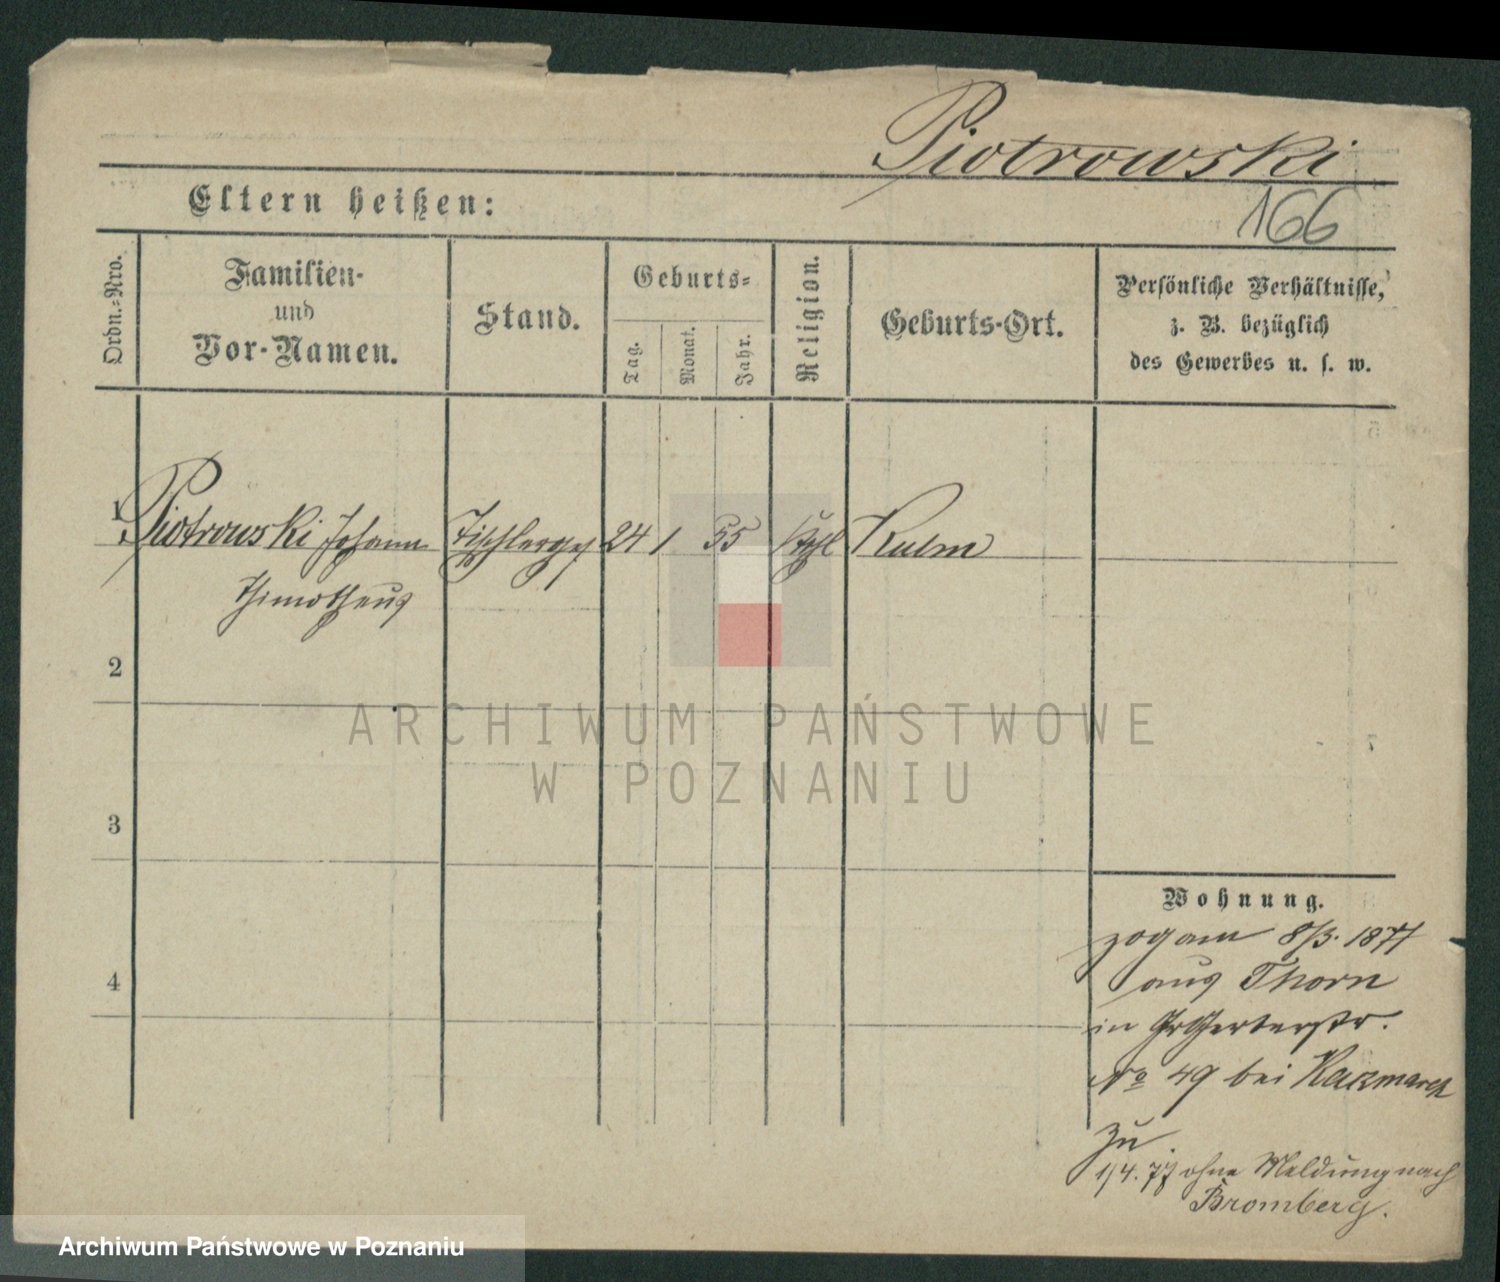 Piotrowski
166
Eltern heißen:
Ordn.-Nro.
Familien-
und
Vor-Namen.
Stand.
Geburts-
Tag.
Monat.
Jahr.
Religion.
Geburts-Ort.
Persönliche Verhältnisse,
z. B. bezüglich
des Gewerbes u. s. w.
1
Piotrowski Johann Tischlerges 24 1 55 kthl Kulm
Thimotheus
2
3
4
Wohnung.
zog am 8/3. 1877
aus Thorn
in Gr Gerberstr.
No 49 bei Kazmarek
zu.
1/4. 77 ohne Meldung nach
Bromberg.
ARCHIWUM PAŃSTWOWE
W POZNANIU
Archiwum Państwowe w Poznaniu